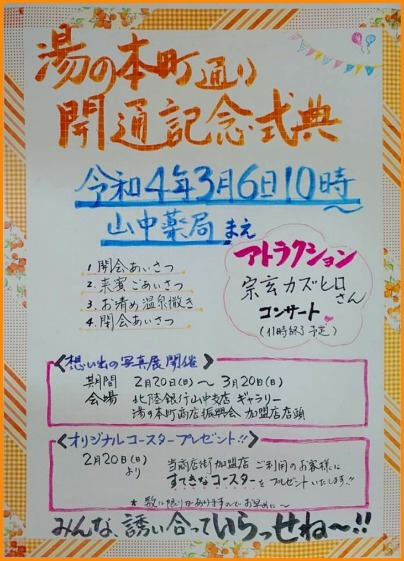 湯の本町通り
開通記念式典
令和4年3月6日10時~
山中薬局まえ
1.開会あいさつ
2.来賓ごあいさつ
3.お清め温泉撒き
4.閉会あいさつ
アトラクション
宗玄カズヒロさん
コンサート
(11時終了予定)
<想い出の写真展開催>
期間 2月20日(日)~3月20日(日)
会場 北陸銀行山中支店 ギャラリー
湯の本町商店振興会 加盟店店頭
<オリジナルコースタープレゼント!!>
2月20日(日)より
当商店街加盟店ご利用のお客様に
すてきなコースターをプレゼントいたします!!
★数に限りがありますのでお早めに~
みんな、誘い合っていらっせね~!!